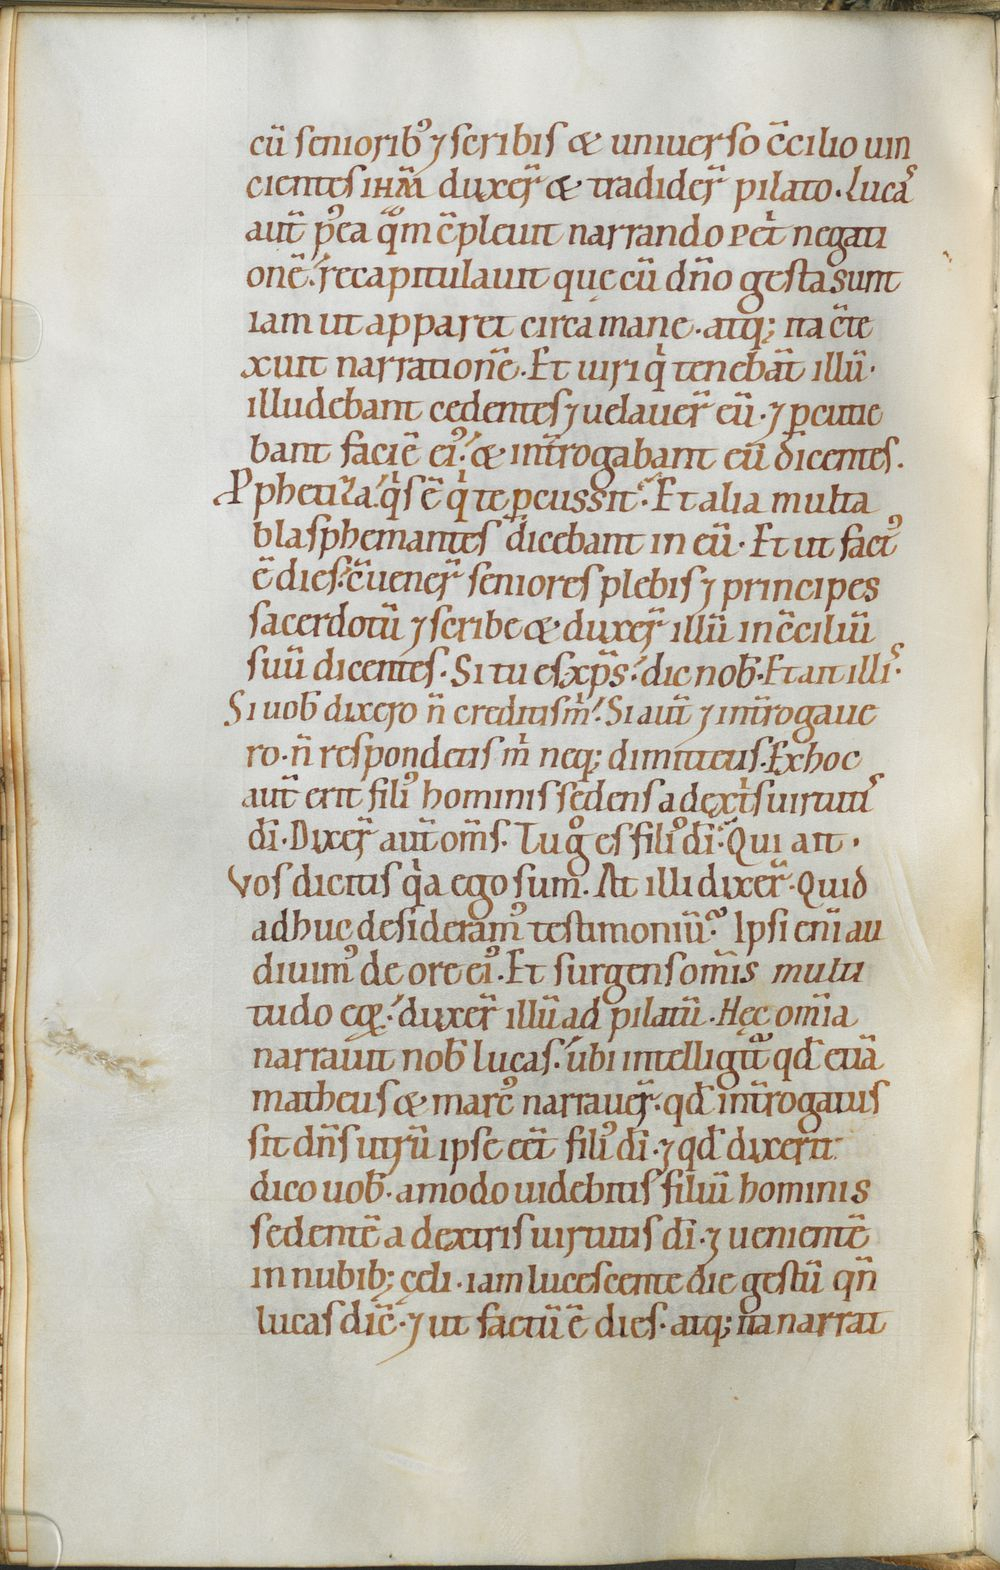 cū seniorib᾿ ⁊ scribis & uniuerso c̄cilio uin
cientes ihm̄ duxer̄ & tradider̄ pilato. Lucas
aut̄ p᾿ea qͦm c̄pleuit narrando petͥ negati
onē. recapitulauit que cū dn̄o gesta sunt
iam ut apparet circa mane. atq; ita c̄te
xuit narrationē. Et uiri qͥ tenebāt illū.
illudebant cedentes ⁊ uelauer̄ eū. ⁊ ꝑcutie
bant faciē ei᾿. & int̄rogabant eū dicentes.
Ꝓphetiza. qͥs ē qͥ te ꝑcussit. Et alia multa
blasphemantes dicebant in eū. Et ut fact᾿
ē dies. c̄uener̄ seniores plebis ⁊ principes
sacerdotū ⁊ scribe & duxer̄ illū in c̄ciliū
suū dicentes. Si tu es xp̄s. dic nob̄. Et ait illis.
Si uob̄ dixero n̄ creditis mͥ. Si aut̄ ⁊ int̄rogaue
ro. n̄ respondetis mͥ neq; dimittetis. Ex hoc
aut̄ erit fili᾿ hominis sedens a dextͥs uirtutis
dī. Dixer̄ aut̄ om̄s. Tu gͦ es fili᾿ dī. Qui ait.
Vos dicitis qͥa ego sum. At illi dixer̄. Quid
adhuc desideram᾿ testimoniū. Ipsi enī au
diuim᾿ de ore ei᾿. Et surgens om̄is multi
tudo eoꝝ. duxer̄ illū ad pilatū. Hęc om̄ia
narrauit nob̄ lucas. ubi intelligit̄ qd̄ etiā
matheus & marc᾿ narrauer̄. qd̄ int̄rogatus
sit dn̄s utrū ipse eēt fili᾿ dī. ⁊ qd̄ dixerit.
dico uob̄. amodo uidebitis filiū hominis
sedentē a dextris uirtutis dī. ⁊ uenientē
in nubib; cęli. iam lucescente die gestū qn̄
lucas dic̄. ⁊ ut factū ē dies. atq; ita narrat